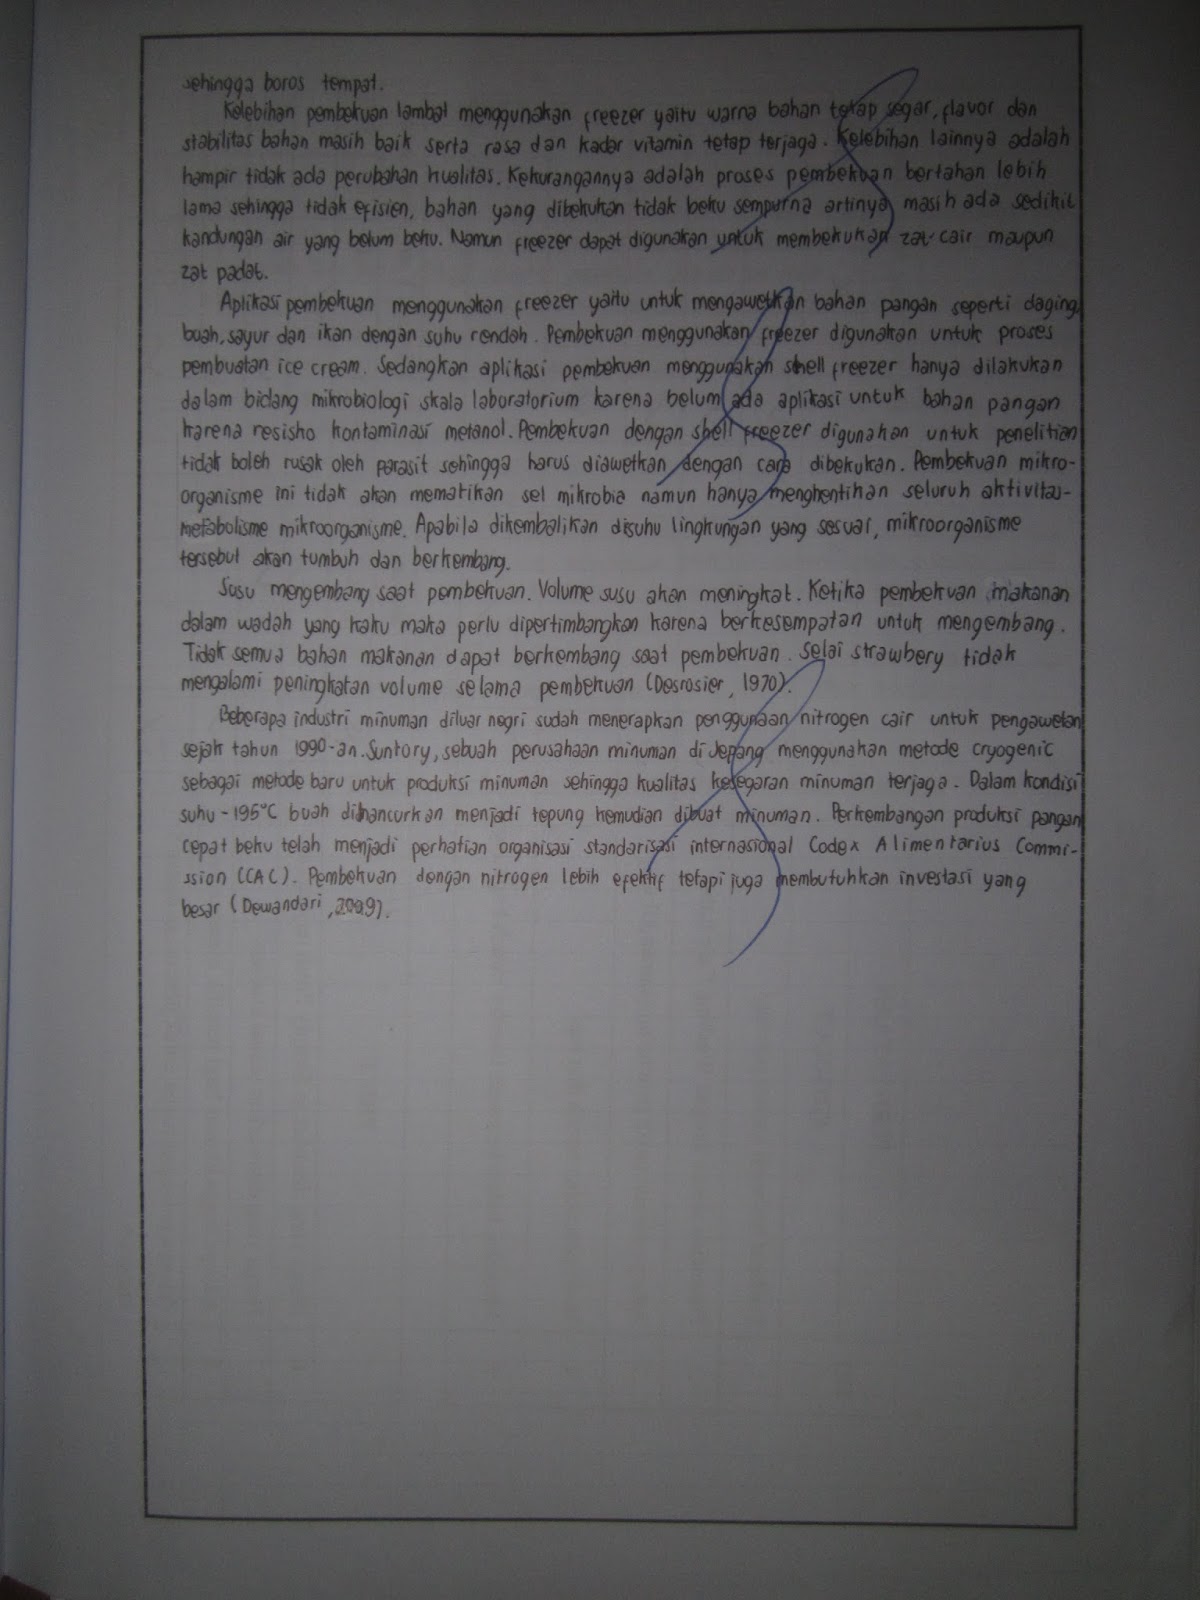 sehingga boros tempat.
Kelebihan pembekuan lambat menggunakan freezer yaitu warna bahan tetap segar, flavor dan
stabilitas bahan masih baik serta rasa dan kadar vitamin tetap terjaga. Kelebihan lainnya adalah
hampir tidak ada perubahan kualitas. Kekurangannya adalah proses pembekuan bertahan lebih
lama sehingga tidak efisien, bahan yang dibekukan tidak beku sempurna artinya masih ada sedikit
kandungan air yang belum beku. Namun freezer dapat digunakan untuk membekukan zat cair maupun
zat padat.
Aplikasi pembekuan menggunakan freezer yaitu untuk mengawetkan bahan pangan seperti daging,
buah, sayur dan ikan dengan suhu rendah. Pembekuan menggunakan freezer digunakan untuk proses
pembuatan ice cream. Sedangkan aplikasi pembekuan menggunakan shell freezer hanya dilakukan
dalam bidang mikrobiologi skala laboratorium karena belum ada aplikasi untuk bahan pangan
karena resisko kontaminasi metanol. Pembekuan dengan shell freezer digunakan untuk penelitian
tidak boleh rusak oleh parasit sehingga harus diawetkan dengan cara dibekukan. Pembekuan mikro-
organisme ini tidak akan mematikan sel mikrobia namun hanya menghentikan seluruh aktivitas-
metabolisme mikroorganisme. Apabila dikembalikan disuhu lingkungan yang sesuai, mikroorganisme
tersebut akan tumbuh dan berkembang.
Susu mengembang saat pembekuan. Volume susu akan meningkat. Ketika pembekuan makanan
dalam wadah yang kaku maka perlu dipertimbangkan karena berkesempatan untuk mengembang.
Tidak semua bahan makanan dapat berkembang saat pembekuan. Selai strawbery tidak
mengalami peningkatan volume selama pembekuan (Desrosier, 1970).
Beberapa industri minuman diluar negri sudah menerapkan penggunaan nitrogen cair untuk pengawetan
sejak tahun 1990-an. Suntory, sebuah perusahaan minuman di Jepang menggunakan metode cryogenic
sebagai metode baru untuk produksi minuman sehingga kualitas kesegaran minuman terjaga. Dalam kondisi
suhu -195°C buah dihancurkan menjadi tepung kemudian dibuat minuman. Perkembangan produksi pangan
cepat beku telah menjadi perhatian organisasi standarisasi internasional Codex Alimentarius Commi-
ssion (CAC). Pembekuan dengan nitrogen lebih efektif tetapi juga membutuhkan investasi yang
besar (Dewandari, 2009).